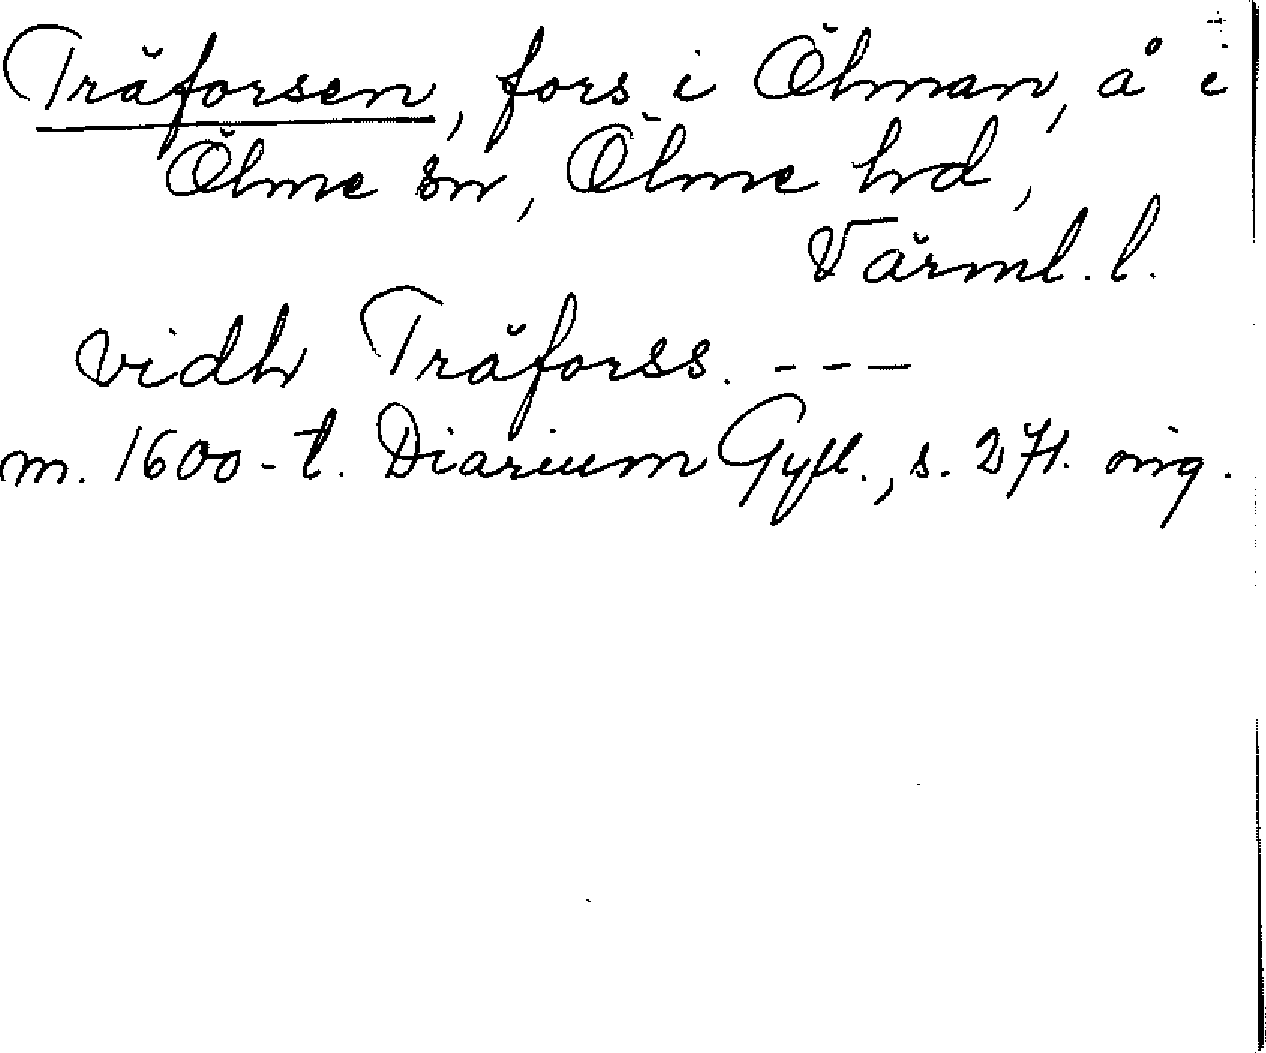 Träforsen, fors i Ölman, å i
Ölme sn, Ölme hd,
Värml. l.
vidh Träforss. ---
m. 1600-t. Diarium Gyll., s. 271. orig.